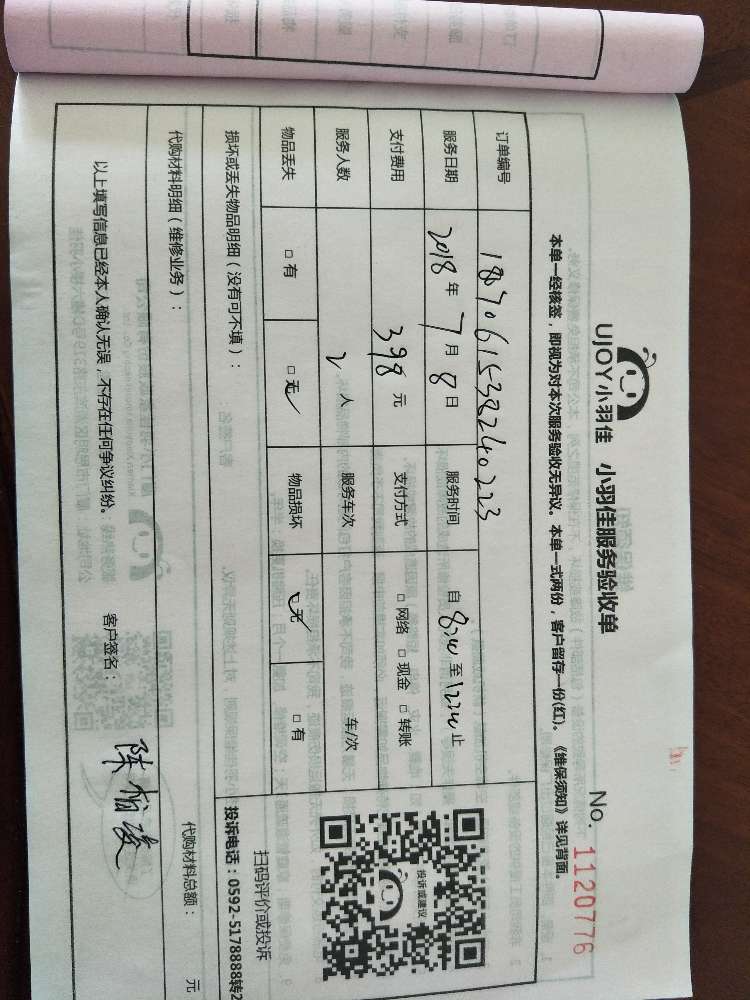 UJOY小羽佳 小羽佳服务验收单
No. 1120776
本单一经核签，即视为对本次服务验收无异议。本单一式两份，客户留存一份(红)。《维保须知》详见背面。
订单编号 1807061538240223
服务日期 2018年7月8日 服务时间 自 至 止
支付费用 398元 支付方式 □网络 □现金 □转账
服务人数 2人 服务车次 车/次
投诉或建议
物品丢失 □有 □无 物品损坏 □无 □有
扫码评价或投诉
损坏或丢失物品明细（没有可不填）：
投诉电话：0592-5178888转2
代购材料明细（维修业务）： 代购材料总额： 元
以上填写信息已经本人确认无误，不存在任何争议纠纷。 客户签名：